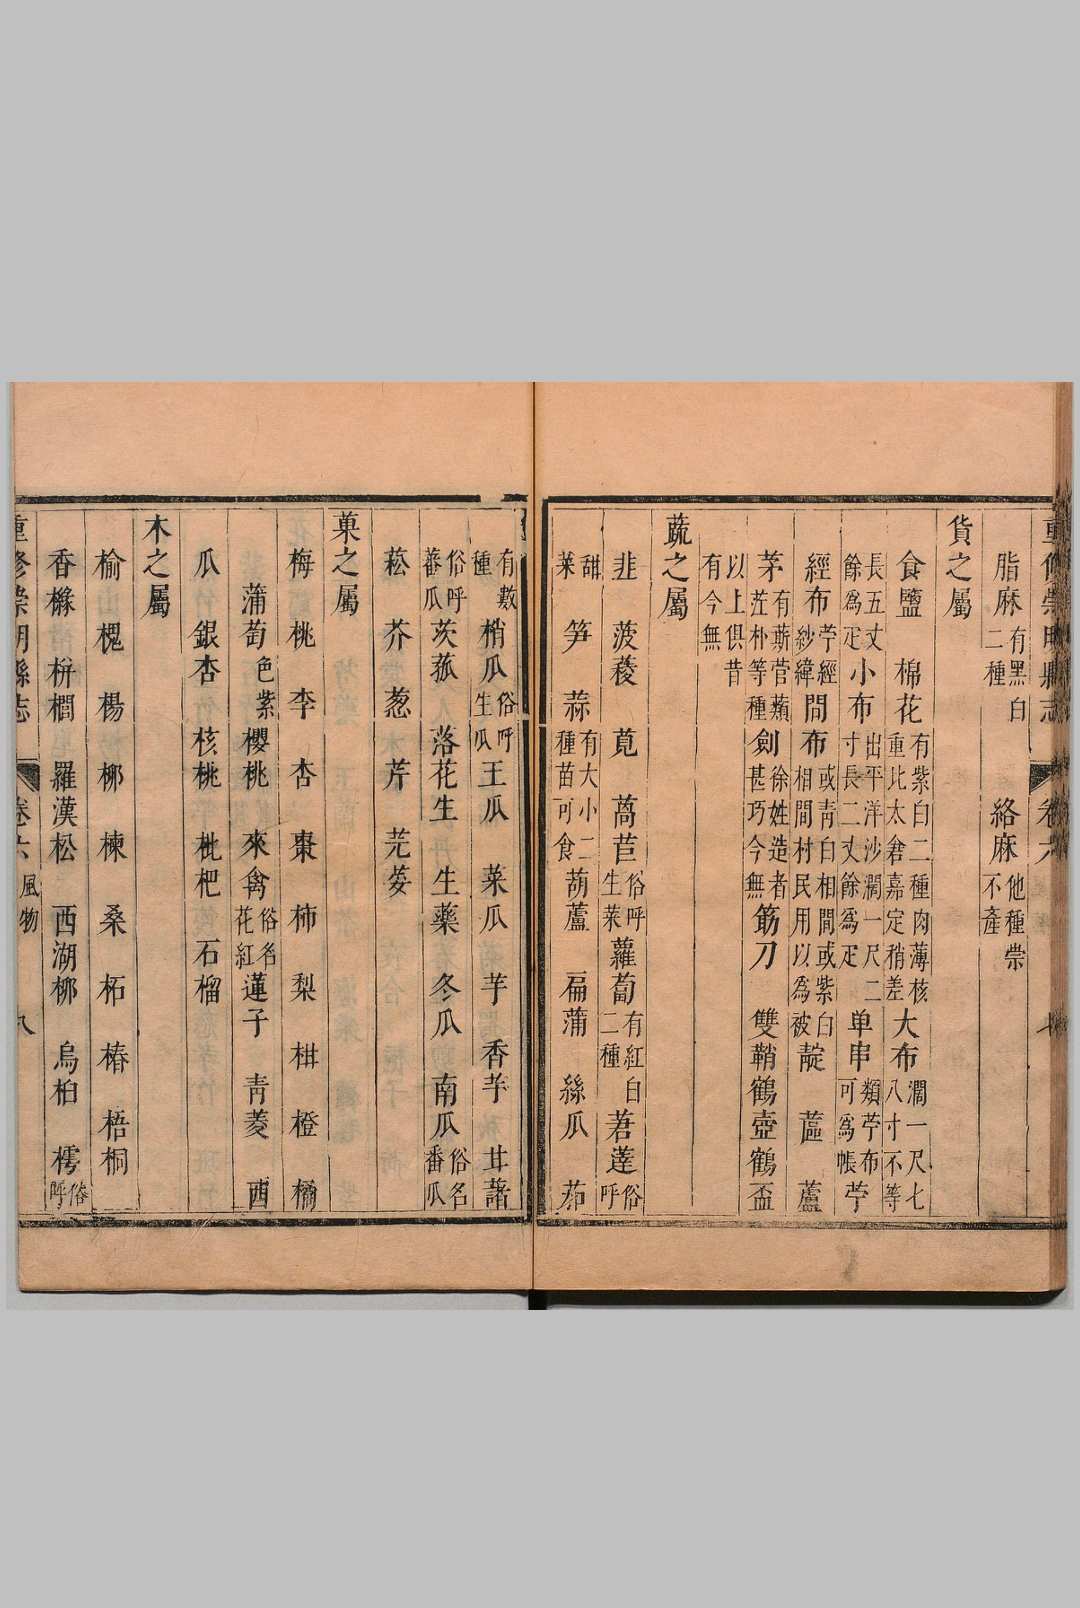 重修崇明縣志 卷六 七
脂麻有黑白二種 絡麻他種崇不產
貨之屬
食鹽 棉花有紫白二種肉薄核重比太倉嘉定稍差大布濶一尺七八寸不等
長五丈餘為疋小布出平洋沙濶一尺二寸長二丈餘為疋单串類苧布可為帳苧
經布苧經紗緯間布或青白相間或紫白相間村民用以為被靛 蓲 蘆
茅有蔪菅䕞茳朴等種劍徐姓造者甚巧今無筯刀 雙鞘鶴壺鶴盃
以上俱昔有今無
蔬之屬
韭 菠薐 莧 萵苣俗呼生菜蘿蔔有紅白二種莙蓬俗呼
甜菜 笋 蒜有大小二種苗可食葫蘆 扁蒲 絲瓜 茄
有數種梢瓜俗呼生瓜王瓜 菜瓜 芋 香芋 甘藷
俗呼蕃瓜茨菰 落花生 生藥 冬瓜 南瓜俗名番瓜
菘 芥 葱 芹 芫荽
菓之屬
梅 桃 李 杏 棗 柿 梨 柑 橙 橘
蒲萄色紫櫻桃 來禽俗名花紅蓮子 青菱 西
瓜 銀杏 核桃 枇杷 石榴
木之屬
榆 槐 楊 栁 楝 桑 柘 椿 梧桐
香櫞 栟櫚 羅漢松 西湖栁 烏桕 樗俗呼
重修崇明縣志 卷六 風物 八